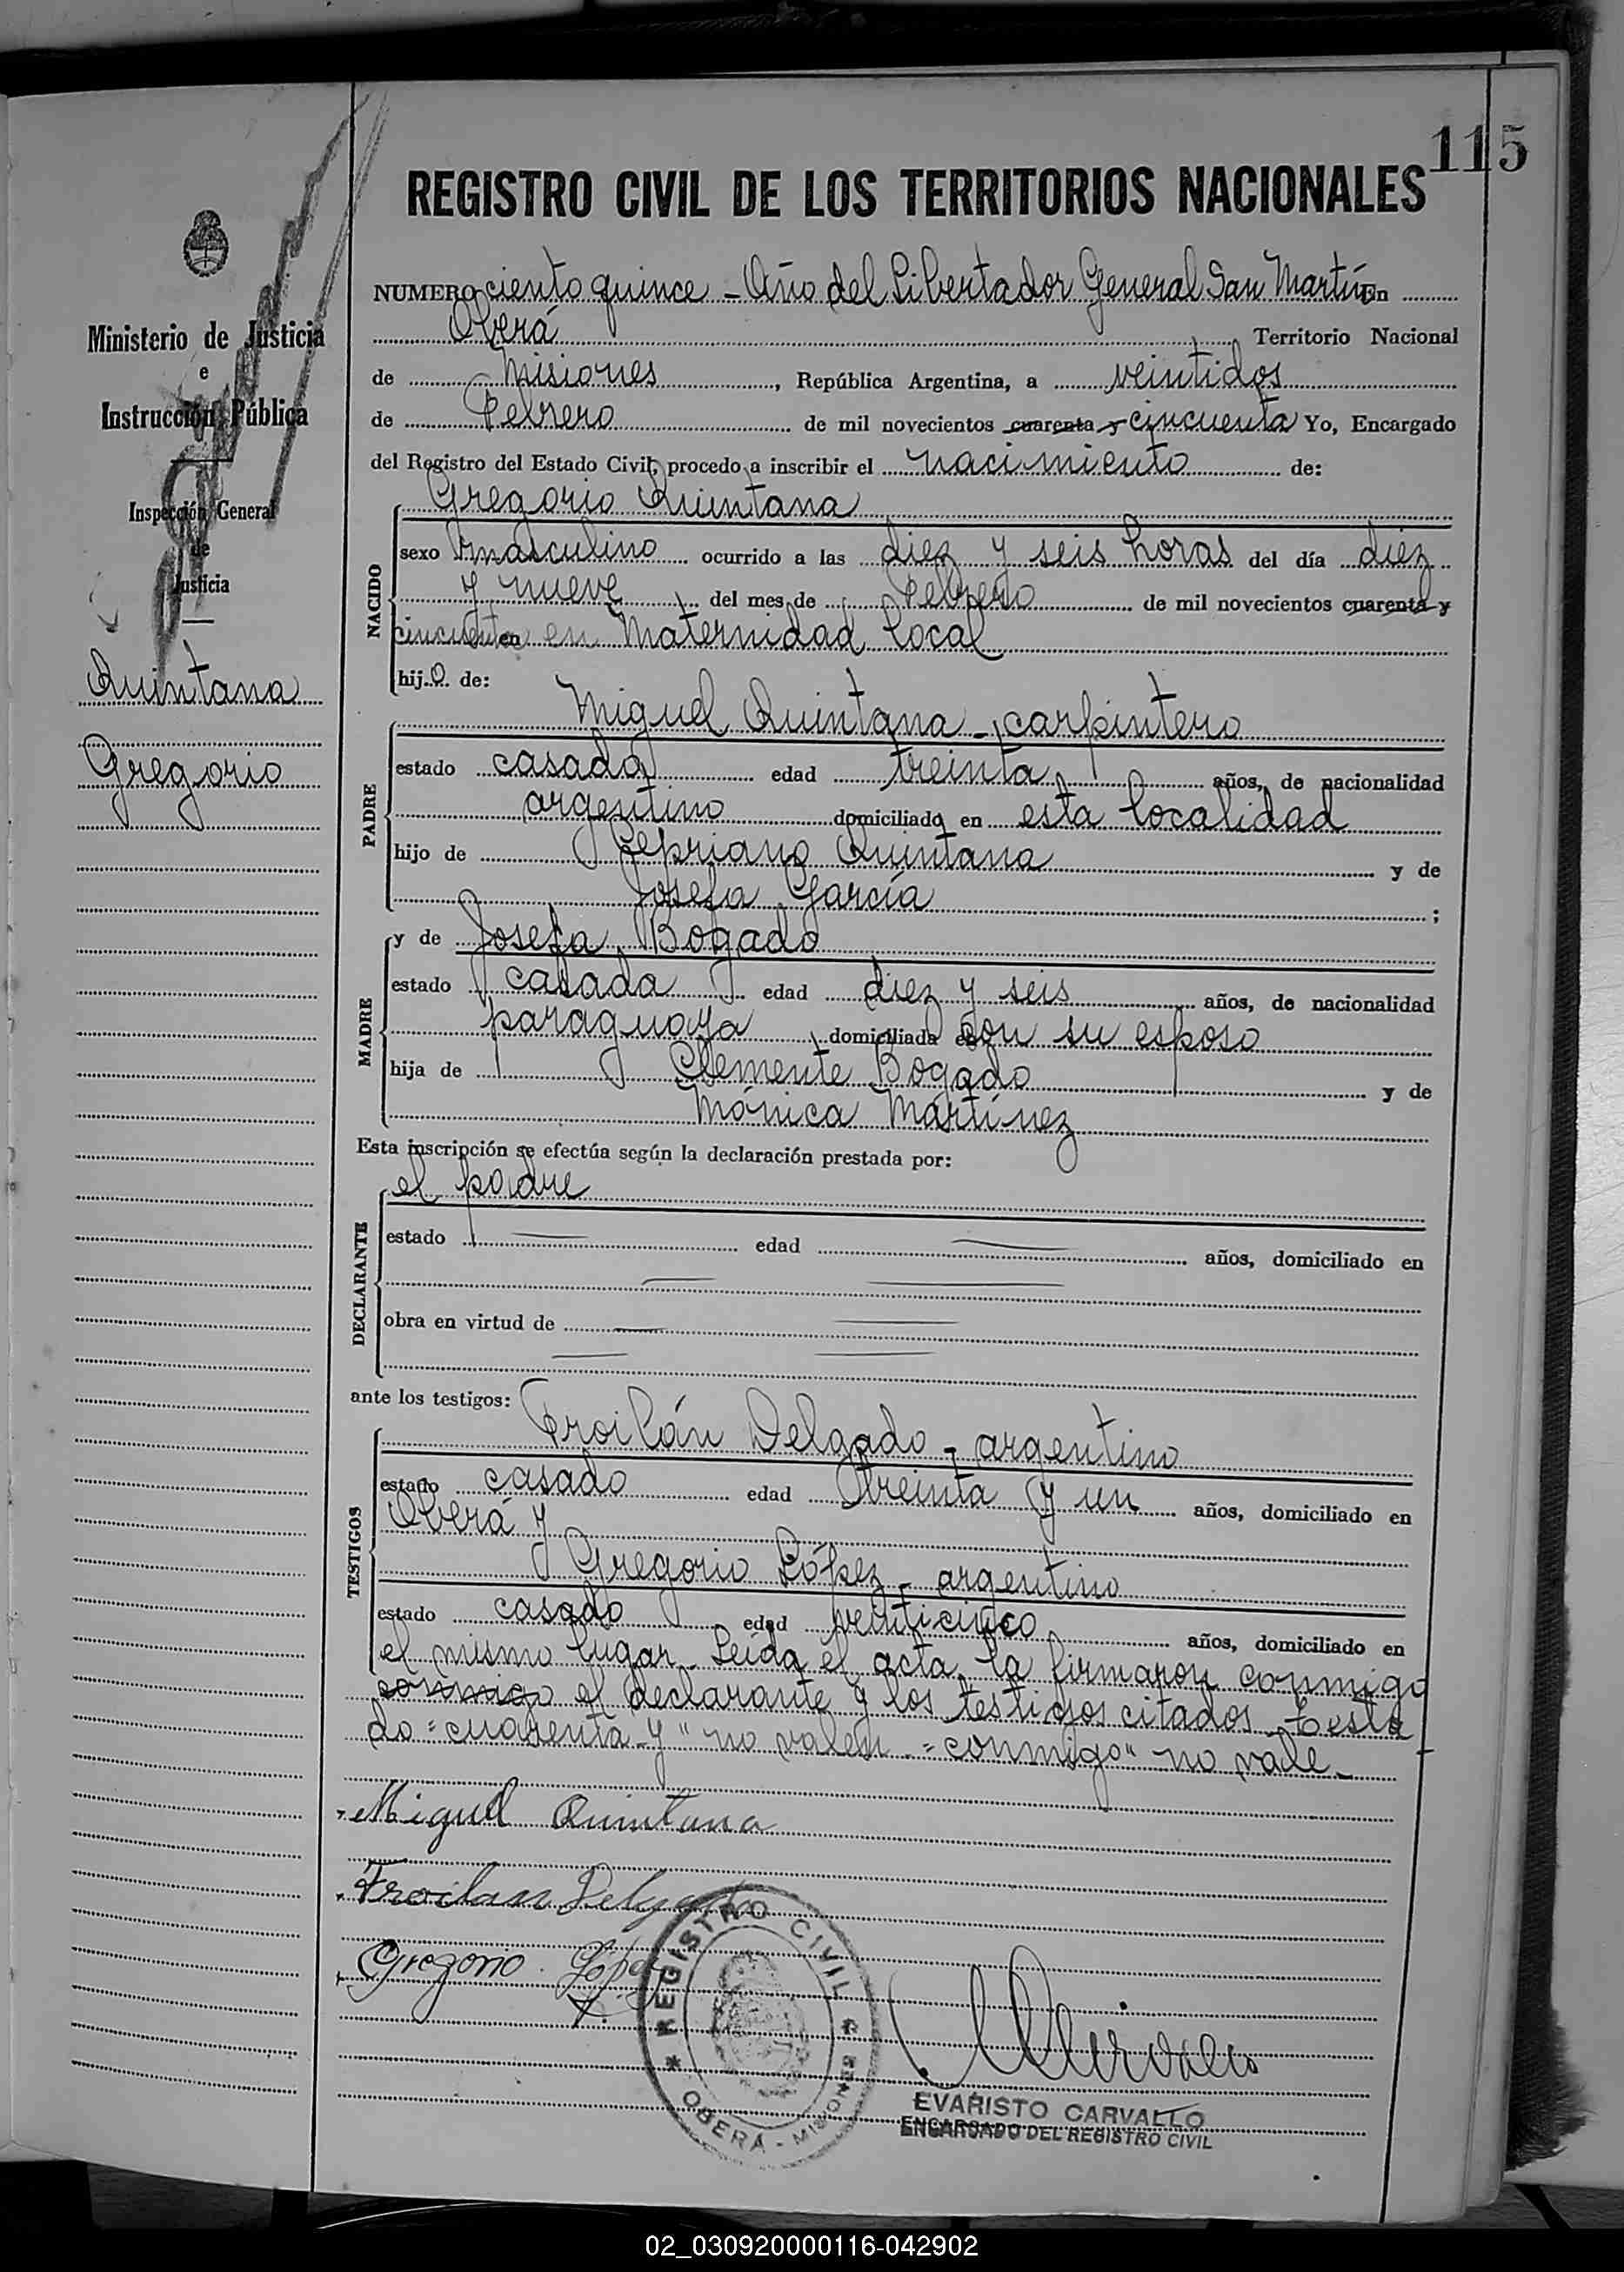 115
REGISTRO CIVIL DE LOS TERRITORIOS NACIONALES
Ministerio de Justicia
e
Instrucción Pública
Inspección General
de
Justicia
Quintana
Gregorio
NUMERO ciento quince - Año del Libertador General San Martín En
Oberá Territorio Nacional
de Misiones, República Argentina, a veintidos
de Febrero de mil novecientos cuarenta y cincuenta Yo, Encargado
del Registro del Estado Civil, procedo a inscribir el nacimiento de:
NACIDO
Gregorio Quintana
sexo masculino ocurrido a las diez y seis horas del día diez
y nueve del mes de Febrero de mil novecientos cuarenta y
cincuenta en en Maternidad local
hijo de:
PADRE
Miguel Quintana - carpintero
estado casado edad treinta años, de nacionalidad
argentino domiciliado en esta localidad
hijo de Cepriano Quintana y de
Josefa García ;
MADRE
y de Josefa Bogado
estado casada edad diez y seis años, de nacionalidad
paraguaya domiciliada en con su esposo
hija de Clemente Bogado y de
Mónica Martínez
Esta inscripción se efectúa según la declaración prestada por:
DECLARANTE
el padre
estado edad años, domiciliado en
obra en virtud de
ante los testigos:
TESTIGOS
Froilán Delgado - argentino
estado casado edad treinta y un años, domiciliado en
Oberá y
Gregorio López - argentino
estado casado edad veinticinco años, domiciliado en
el mismo lugar. Leída el acta, la firmaron conmigo
conmigo el declarante y los testigos citados - testa
do = cuarenta y " no valen - = conmigo " no vale -
Miguel Quintana
Froilan Delgado
Gregorio López
REGISTRO CIVIL
OBERÁ - MISIONES
EVARISTO CARVALLO
ENCARGADO DEL REGISTRO CIVIL
02_030920000116-042902